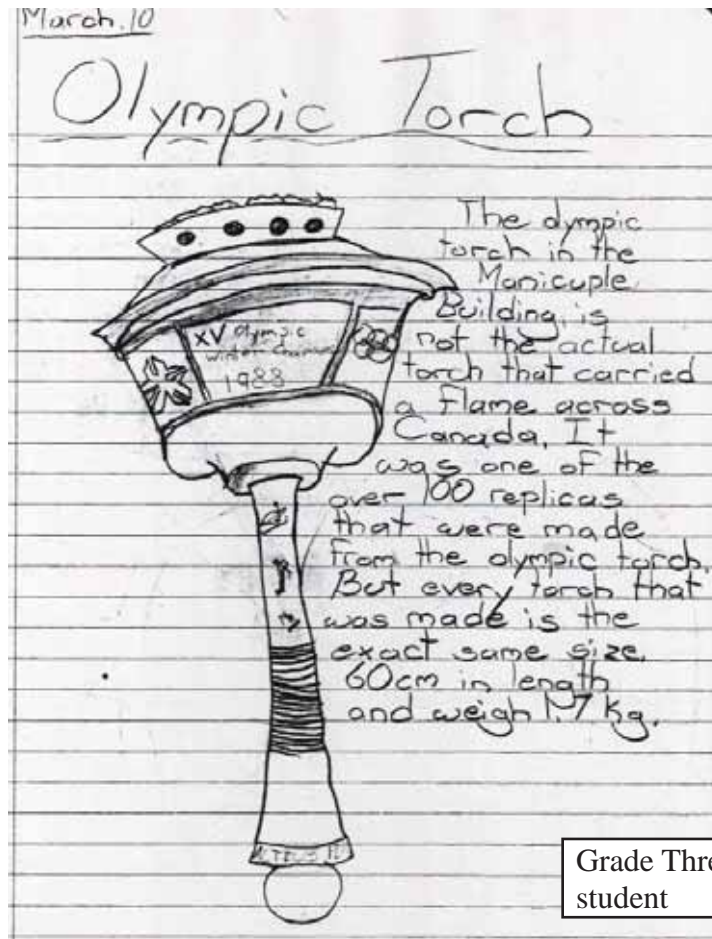 March.10
Olympic Torch
The olympic
torch in the
Manicuple
Building, is
not the actual
torch that carried
a flame across
Canada, It
was one of the
over 100 replicas
that were made
from the olympic torch.
But every torch that
was made is the
exact same size,
60cm in length
and weigh 1.7 kg.
XV Olympic
Winter
1988
Grade Thre
student